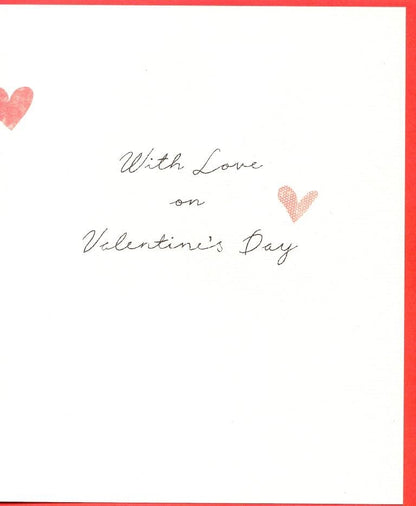 With Love
on
Valentine's Day